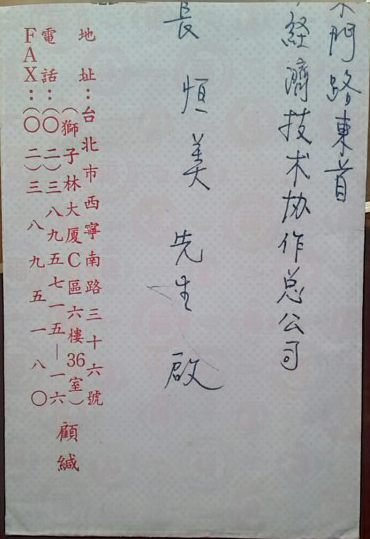 門路東首
經濟技术协作总公司
長恒美先生 啟
地址：台北市西寧南路三十六號
（獅子林大厦C區六樓36室）
電話：（〇二）三八九五七一五｜一六
FAX：（〇二）三八九五一八〇
顧緘